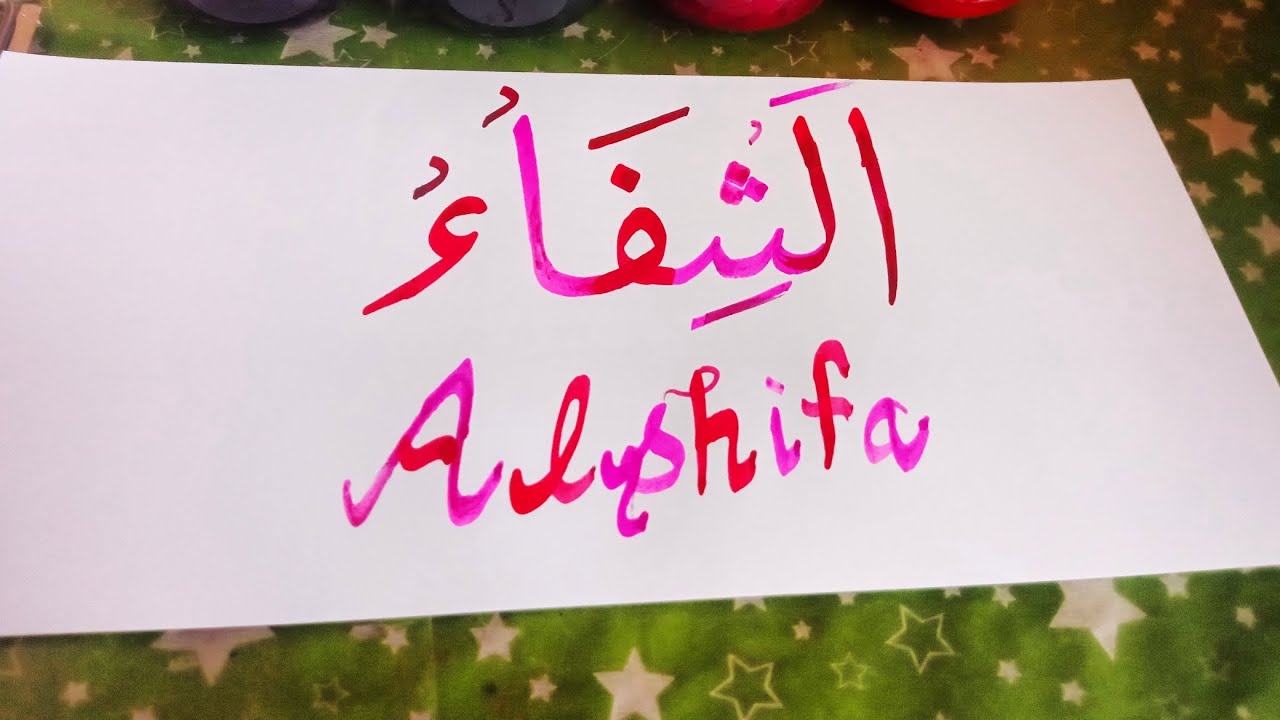 الَشُِفَاُءُ
Alshifa